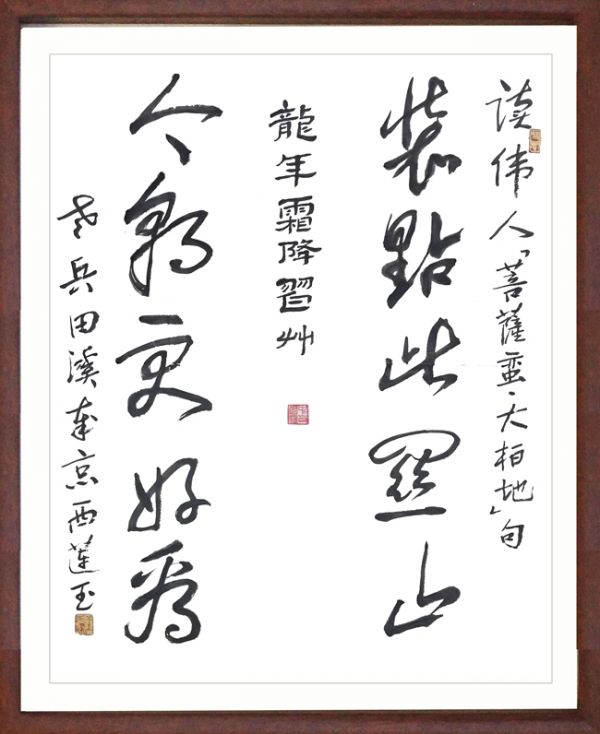 读伟人「菩薩蛮·大柏地」句
装點此關山
龍年霜降習艸
今朝更好看
老兵田溪京西蓮玉